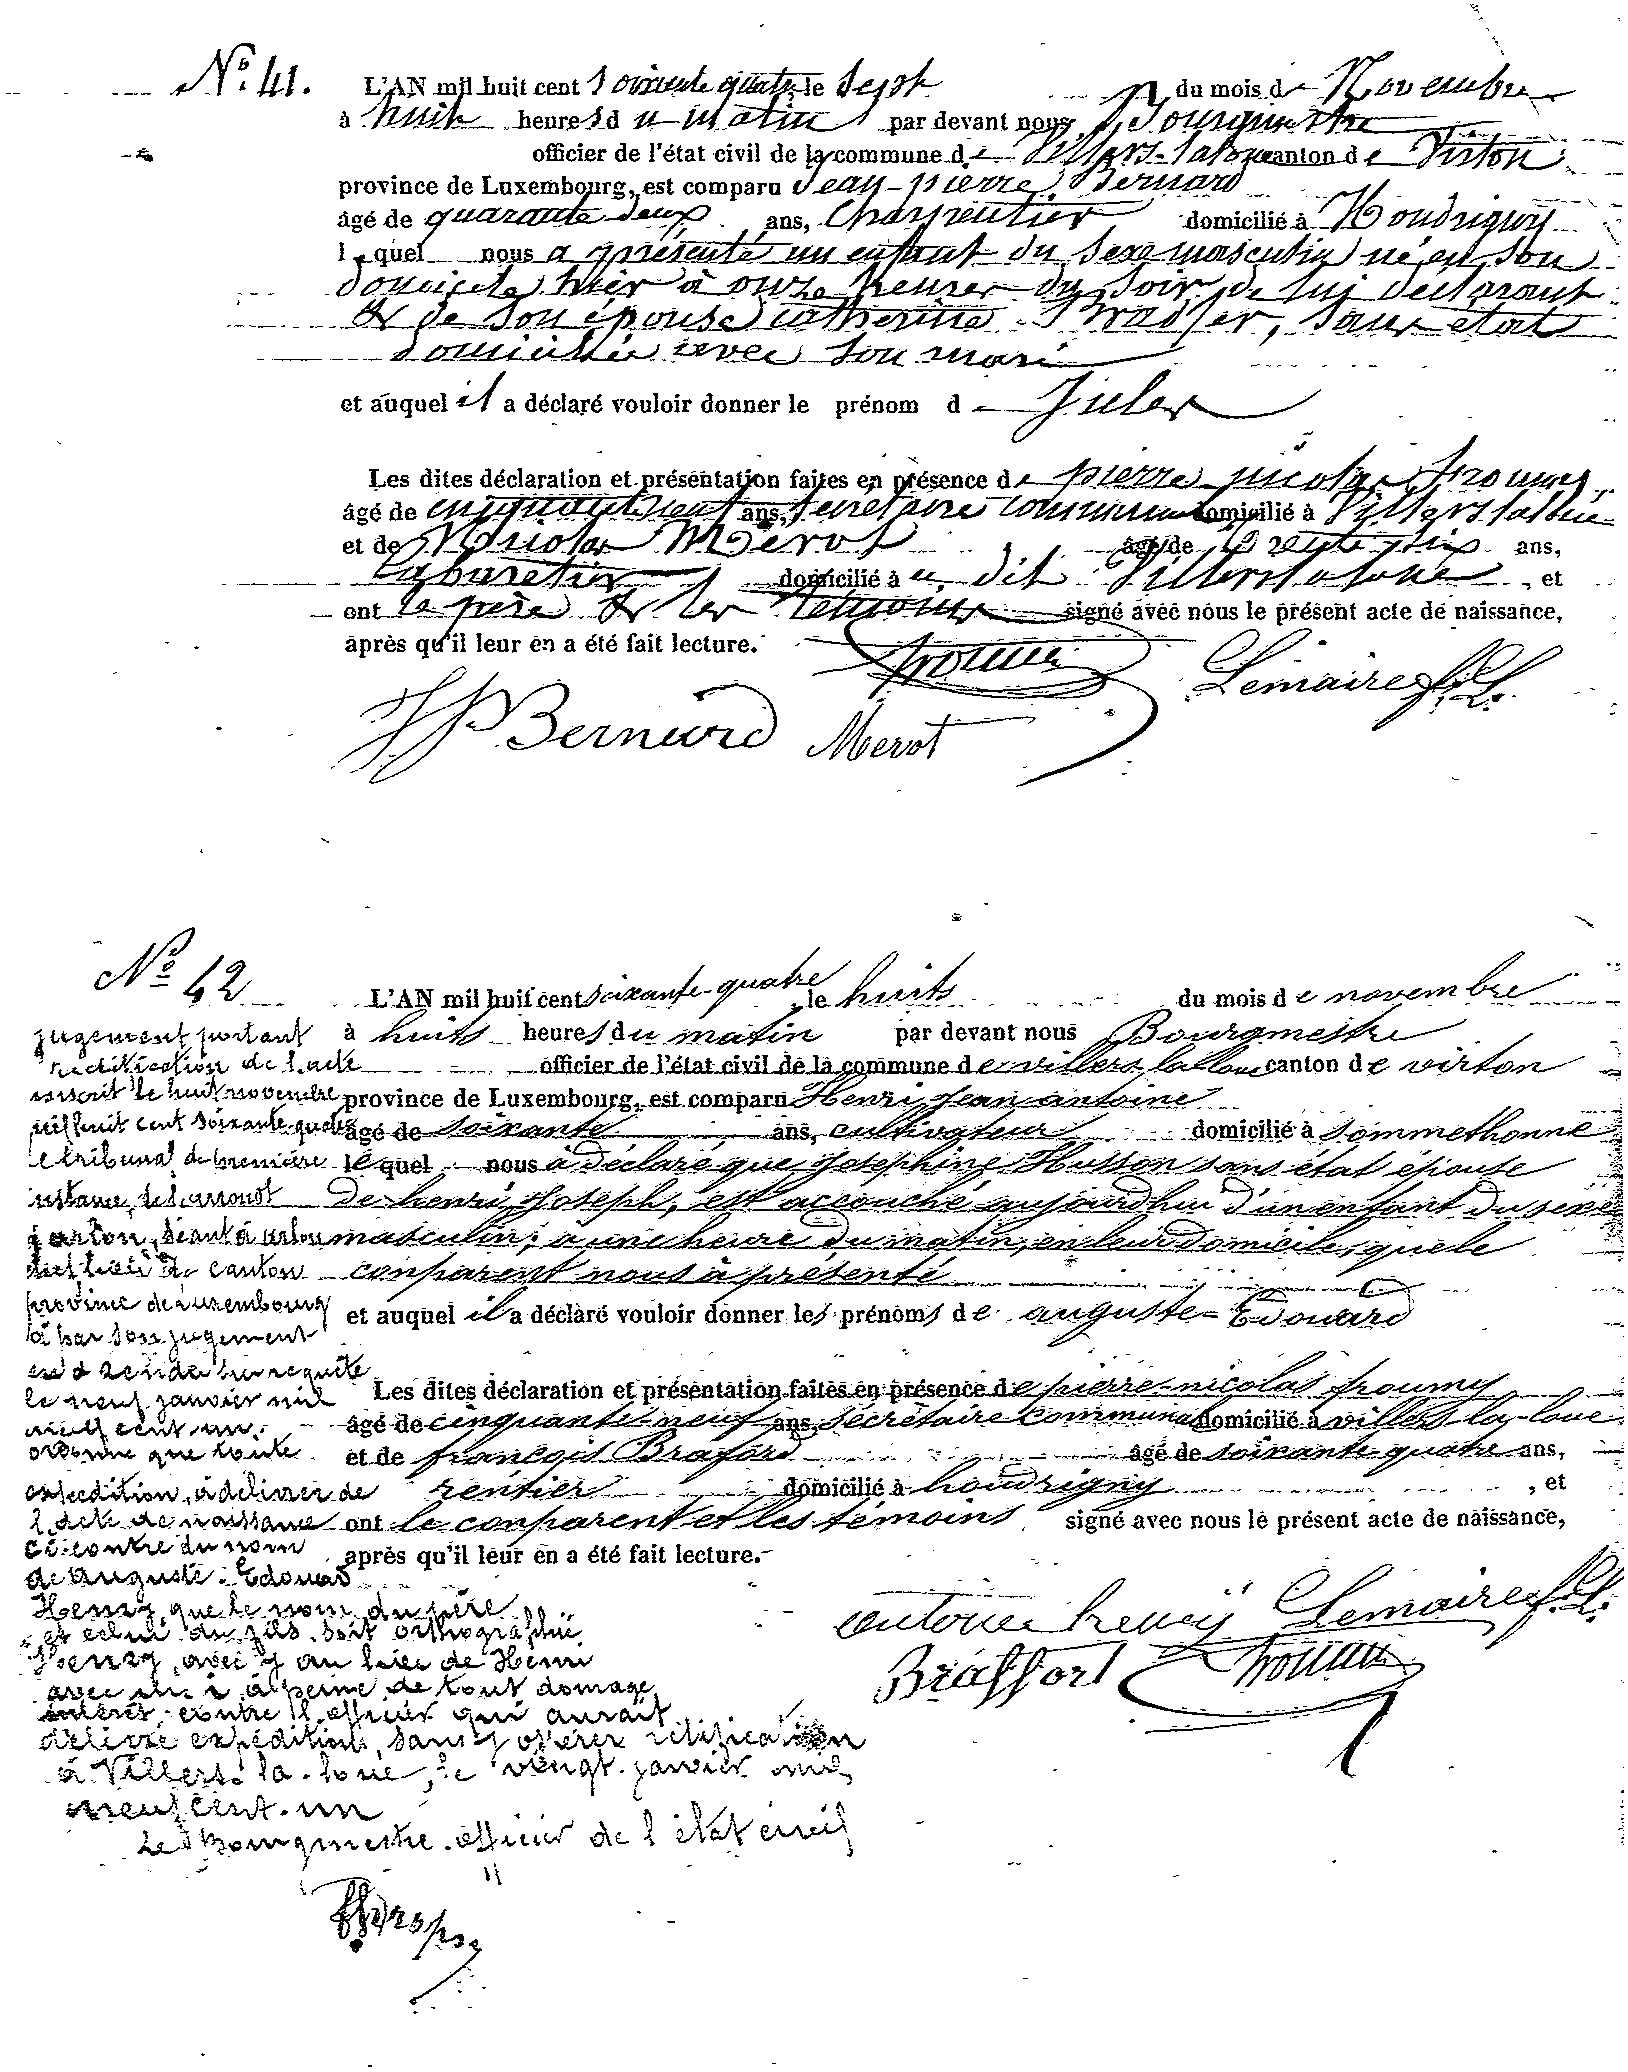 N° 41.
L'AN mil huit cent soixante quatre, le sept du mois de Novembre
à huit heures du matin par devant nous, Bourgmestre
officier de l'état civil de la commune de Villers-la-Loue canton de Virton
province de Luxembourg, est comparu Jean-pierre Bernard
âgé de quarante deux ans, Charpentier domicilié à Houdrigny
lequel nous a présenté un enfant du sexe masculin né en son
domicile hier à onze heures du soir, de lui déclarant
& de son épouse catherine, sans état
domiciliée avec son mari
et auquel il a déclaré vouloir donner le prénom de Jules
Les dites déclaration et présentation faites en présence de pierre-nicolas froumy,
âgé de cinquante neuf ans, secrétaire communal domicilié à Villers la loue
et de Nicolas Merot âgé de trente six ans,
Cabaretier domicilié à u dit Villers la loue, et
ont le père & les témoins signé avec nous le présent acte de naissance,
après qu'il leur en a été fait lecture.
froumy Lemaire f.L.
JP Bernard Merot
N° 42
L'AN mil huit cent soixante-quatre, le huits du mois de novembre
à huits heures du matin par devant nous Bourgmestre
officier de l'état civil de la commune de villers la loue canton de virton
province de Luxembourg, est comparu Henri, Jean antoine
âgé de soixante ans, cultivateur domicilié à sommethonne
lequel nous à déclaré que Josephine Husson sans état épouse
de henri, Joseph, est accouché aujourdhui d'un enfant du sexe
masculin; a une heure du matin, en leur domicile, que le
conparent nous à présenté
et auquel il a déclaré vouloir donner les prénoms de auguste-Edouard
Les dites déclaration et présentation faites en présence de pierre-nicolas froumy
âgé de cinquante neuf ans, secrétaire communal domicilié à villers-la-loue
et de françois Brafort âgé de soixante quatre ans,
rentier domicilié à houdrigny, et
ont le conparent et les témoins signé avec nous le présent acte de naissance,
après qu'il leur en a été fait lecture.-
antoine henry Lemaire f.L.
Braffort froumy
jugement portant
rectification de l'acte
inscrit le huit novembre
mil huit cent soixante-quatre
le tribunal de première
instance, de l'arrondt
d'arlon, séant à arlon
chef lieu de canton
province de Luxembourg
à par son jugement
rendu sur requête
le neuf janvier mil
neuf cent-un.
ordonne que toute
expédition, à délivrer de
l'acte de naissance
ci-contre du nom
de Auguste-Edouard
Henry, que le nom du père
et celui du fils soit orthographié
Henry, avec y au lieu de Henri
avec un i, à peine de tout domage
interêt, contre l'officier qui aurait
délivré expédition, sans y opérer rectification
à Villers-la-loue, le vingt janvier mil
neuf cent-un
Le Bourgmestre officier de l'état civil